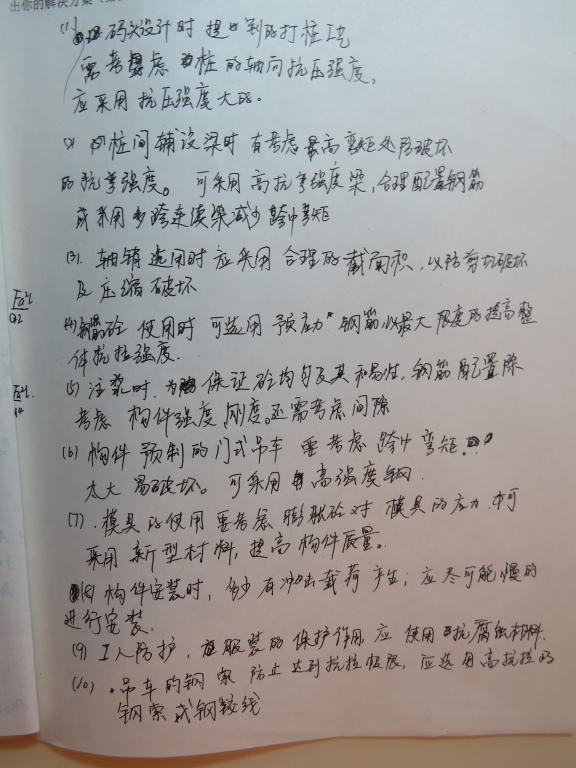 出你的解决方案
(1) 码头设计时 提 到的打桩工艺
需考虑 桩的轴向抗压强度,
应采用抗压强度大的。
桩间铺设梁时 有考虑最高弯矩处易破坏
的抗弯强度。可采用高抗弯强度梁,合理配置钢筋
或采用多跨连续梁减少跨中弯矩
(3). 轴销选用时应采用合理的截面积,以防剪切破坏
及压缩破坏
(4) 钢筋砼使用时可选用预应力钢筋以最大限度的提高整
件抗拉强度.
(5) 注浆时. 为 保证砼均匀及其和易性,钢筋配置除
考虑构件强度,刚度。还需考虑间隙
(6) 构件预制的门式吊车 要考虑跨中弯矩
太大易破坏。可采用高强度钢.
(7). 模具的使用要考虑膨胀砼对模具的应力. 可
采用新型材料,提高构件质量。
(8) 构件安装时,多少有冲击载荷产生;应尽可能慢的
进行安装.
(9) 工人防护. 服装的保护作用应使用抗腐蚀材料.
(10) . 吊车的钢索防止达到抗拉极限,应选用高抗拉的
钢索或钢绞线